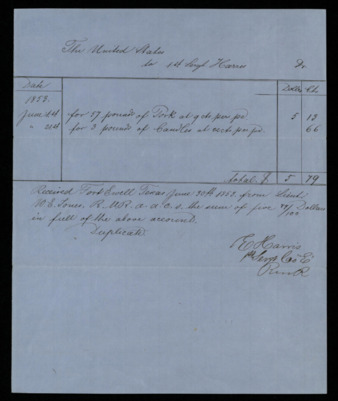 The United States
to 1st Sergt Harris Dr
Date Dolls Cts
1853.
June 1st for 57 pounds of Pork at 9 cts per pd 5 13
" for 3 pounds of Candles at 22 cts per pd 66
Total $ 5 79
Received Fort Ewell Texas June 30th 1853 from Lieut
W. E. Jones R. M. R. a. a. C. S. the sum of five 79/100 Dollars
in full of the above account.
Duplicate.
E Harris
1st Sergt Co E
R